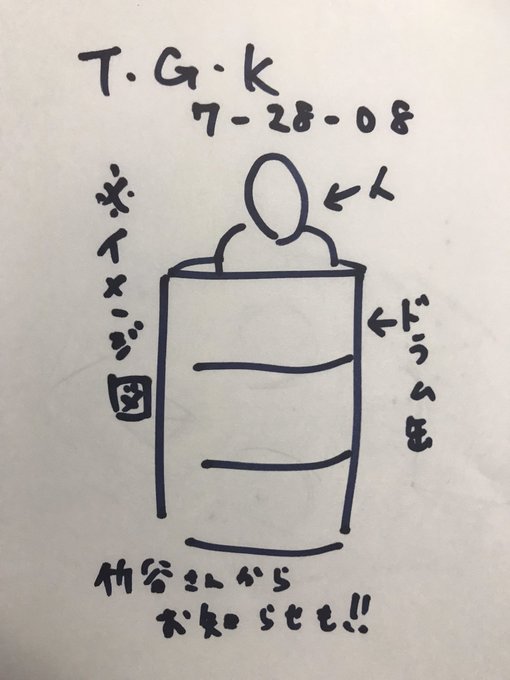 T.G.K
7-28-08
※イメージ図
←人
←ドラム缶
竹谷さんから
お知らせも!!